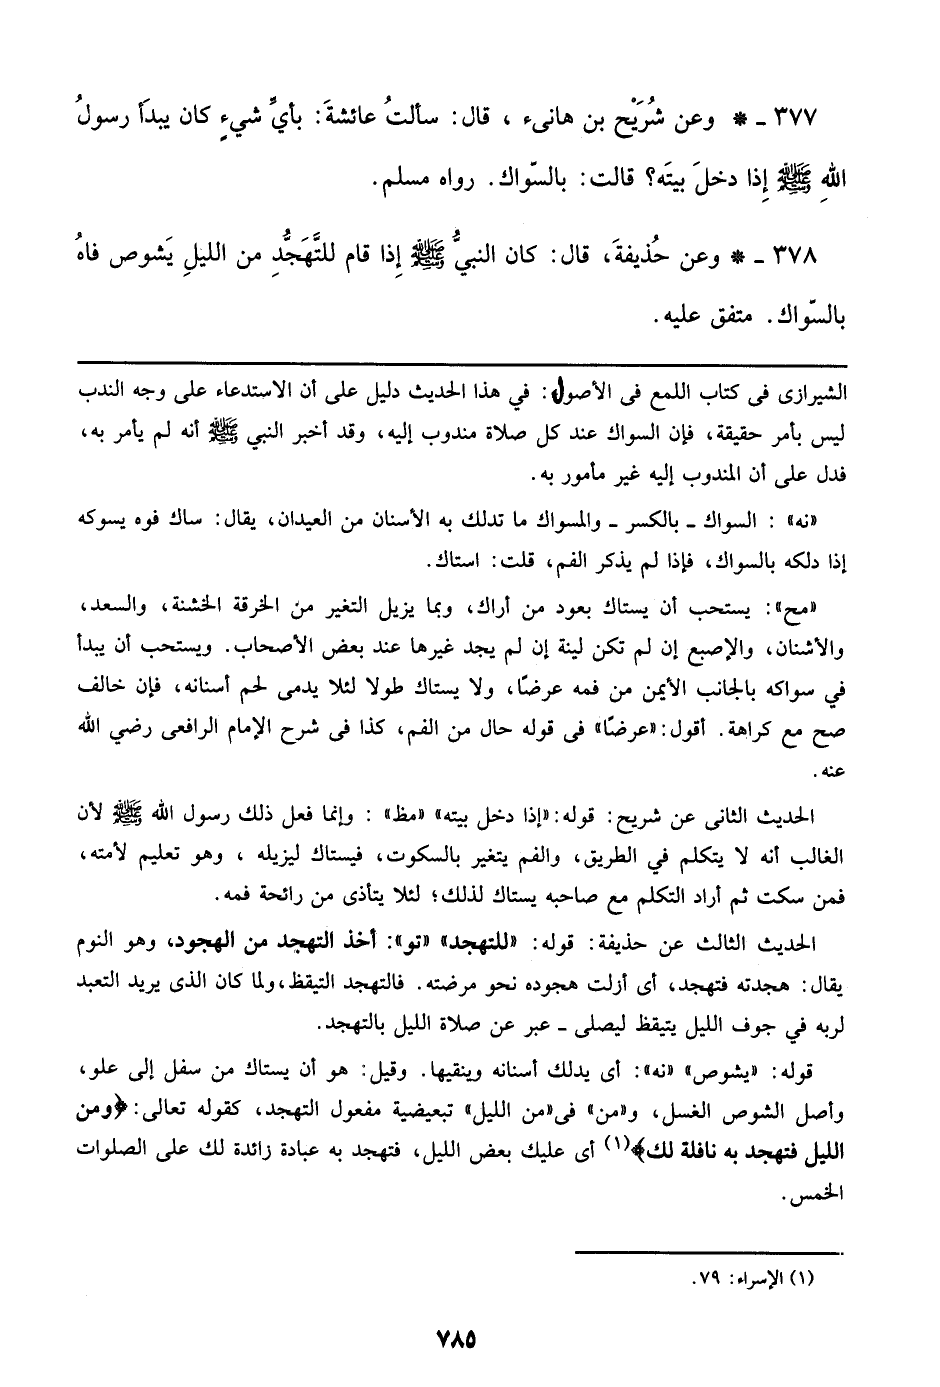 ٣٧٧ ـ * وعن شُرَيْح بن هانىء ، قال: سألتُ عائشةَ: بأيِّ شيءٍ كان يبدأ رسولُ
اللهِ ﷺ إِذا دخلَ بيتَه؟ قالت: بالسّواك. رواه مسلم.
٣٧٨ ـ * وعن حُذيفةَ، قال: كان النبيُّ ﷺ إِذا قام للتَّهَجُّدِ من الليلِ يَشوص فاهُ
بالسّواك. متفق عليه.
الشيرازى فى كتاب اللمع فى الأصول: في هذا الحديث دليل على أن الاستدعاء على وجه الندب
ليس بأمر حقيقة، فإن السواك عند كل صلاة مندوب إليه، وقد أخبر النبي ﷺ أنه لم يأمر به،
فدل على أن المندوب إليه غير مأمور به.
«نه» : السواك ـ بالكسر ـ والمسواك ما تدلك به الأسنان من العيدان، يقال: ساك فوه يسوكه
إذا دلكه بالسواك، فإذا لم يذكر الفم، قلت: استاك.
«مح»: يستحب أن يستاك بعود من أراك، وبما يزيل التغير من الخرقة الخشنة، والسعد،
والأشنان، والإصبع إن لم تكن لينة إن لم يجد غيرها عند بعض الأصحاب. ويستحب أن يبدأ
في سواكه بالجانب الأيمن من فمه عرضًا، ولا يستاك طولا لئلا يدمى لحم أسنانه، فإن خالف
صح مع كراهة. أقول:«عرضًا» فى قوله حال من الفم، كذا فى شرح الإمام الرافعى رضي الله
عنه.
الحديث الثانى عن شريح: قوله:«إذا دخل بيته» «مظ» : وإنما فعل ذلك رسول الله ﷺ لأن
الغالب أنه لا يتكلم في الطريق، والفم يتغير بالسكوت، فيستاك ليزيله ، وهو تعليم لأمته،
فمن سكت ثم أراد التكلم مع صاحبه يستاك لذلك؛ لئلا يتأذى من رائحة فمه.
الحديث الثالث عن حذيفة: قوله: «للتهجد» «تو»: أخذ التهجد من الهجود، وهو النوم
يقال: هجدته فتهجد، أى أزلت هجوده نحو مرضته. فالتهجد التيقظ،ولما كان الذى يريد التعبد
لربه في جوف الليل يتيقظ ليصلى ـ عبر عن صلاة الليل بالتهجد.
قوله: «يشوص» «نه»: أى يدلك أسنانه وينقيها. وقيل: هو أن يستاك من سفل إلى علو،
وأصل الشوص الغسل، و«من» فى«من الليل» تبعيضية مفعول التهجد، كقوله تعالى: ﴿ومن
الليل فتهجد به نافلة لك﴾(١) أى عليك بعض الليل، فتهجد به عبادة زائدة لك على الصلوات
الخمس.
(١) الإسراء: ٧٩.
٧٨٥